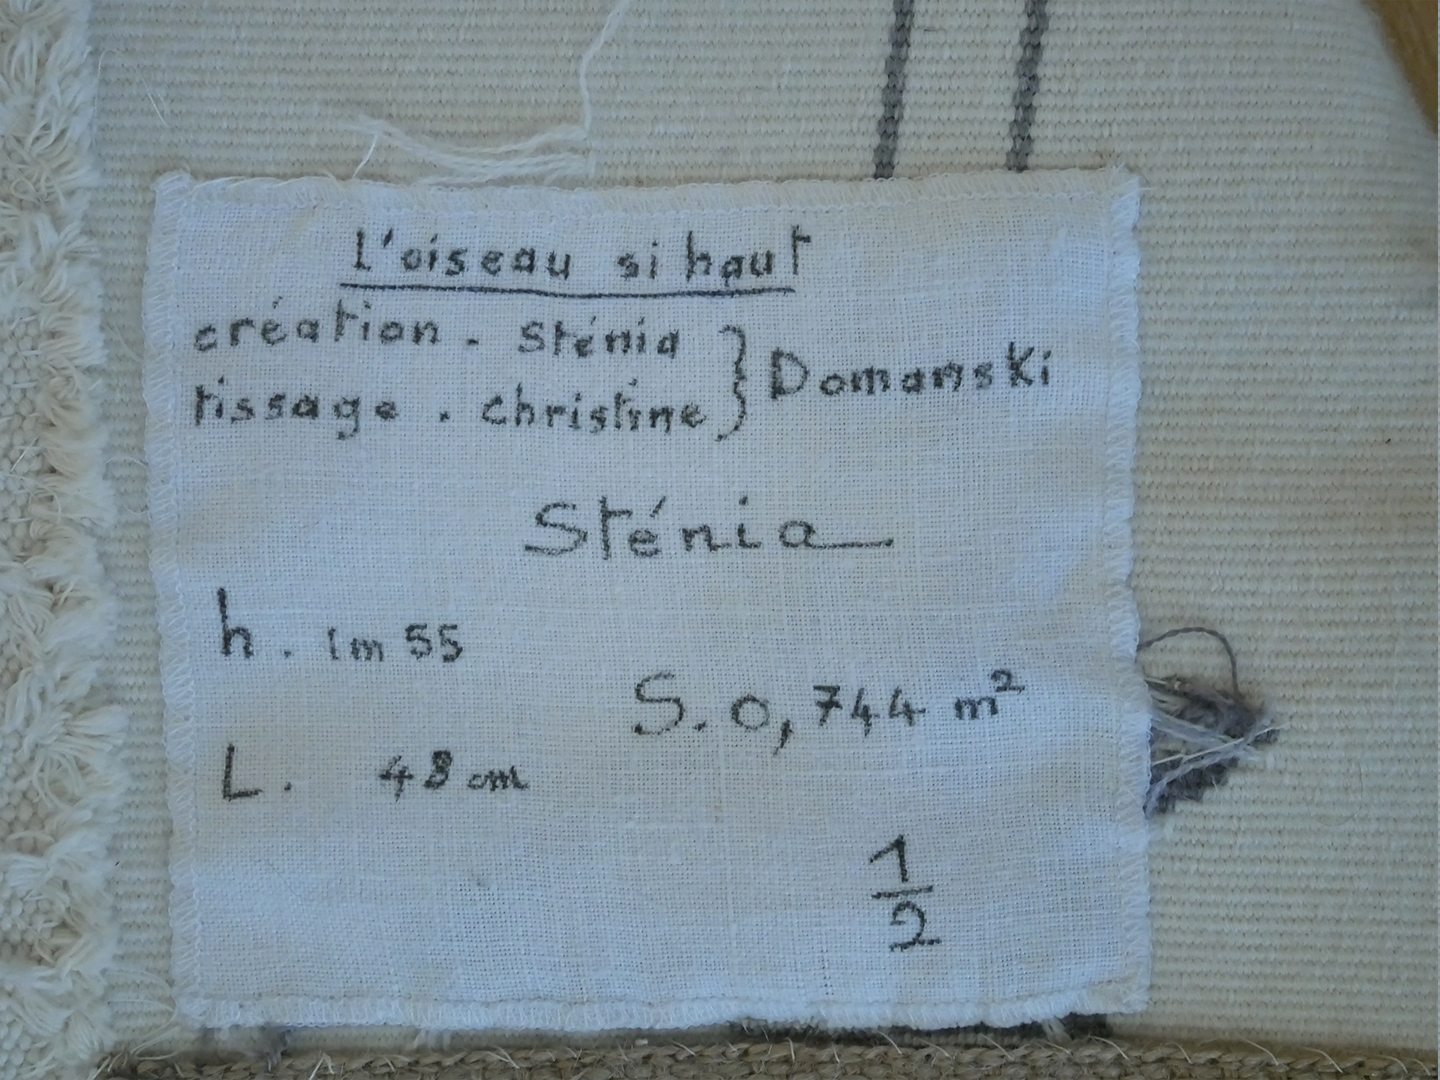 L'oiseau si haut
création . Sténia } Domanski
tissage . Christine
Sténia
h . 1m 55
S. 0,744 m²
L. 48 cm
1/2